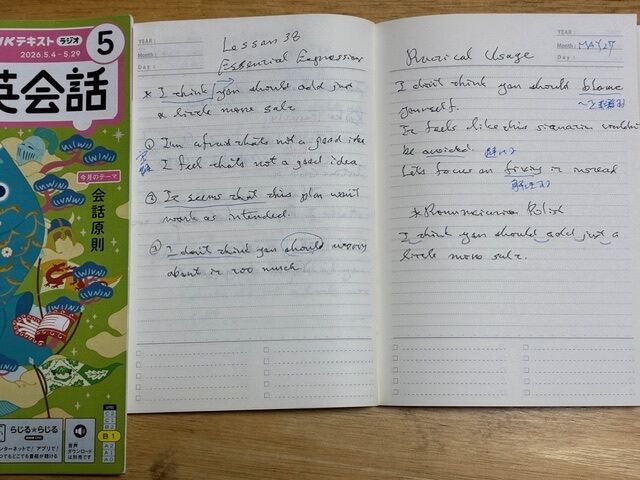 NHKテキスト ラジオ
2026.5.4–5.29
5
英会話
今月のテーマ
会話原則
B1
らじる★らじる
音声
ダウンロード
は別売です
YEAR :
Month :
Day :
Lesson 38
Essential Expression
* I think you should add just
a little more salt
① I'm afraid that's not a good idea
I feel that's not a good idea.
② It seems that this plan won't
work as intended.
③ I don't think you should worry
about it too much
YEAR :
Month : MAY 27
Day :
Practical Usage
I don't think you should blame
yourself.
It feels like this situation couldn't
be avoided. 避ける
Let's focus on fixing it instead
*Pronunciation Polish
I think you should add just a
little more salt.